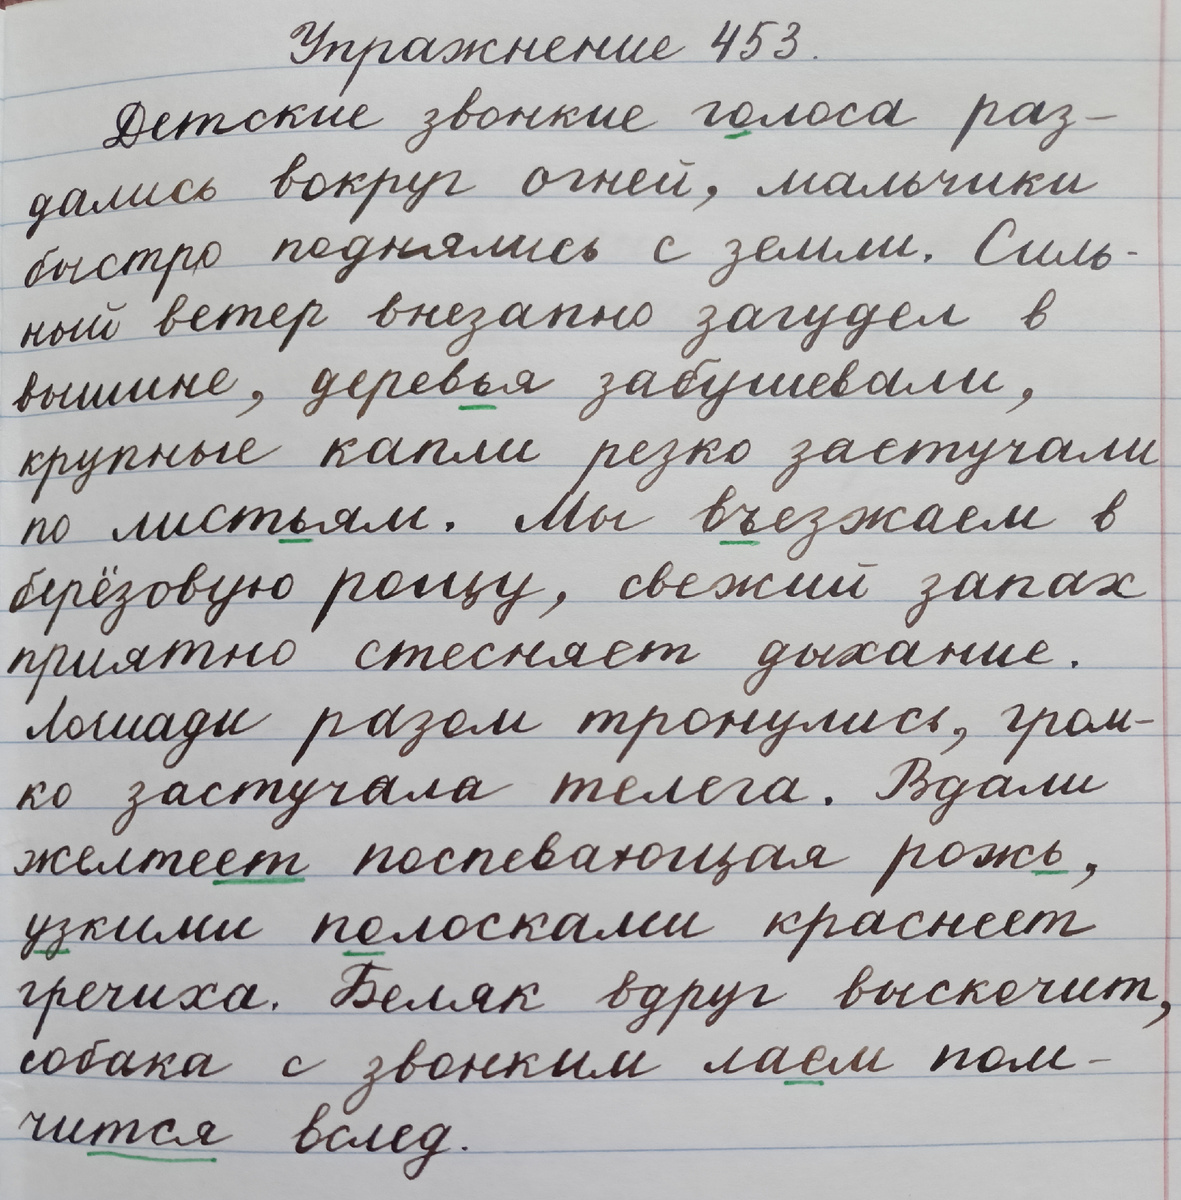 Упражнение 453.
Детские звонкие голоса раз-
дались вокруг огней, мальчики
быстро поднялись с земли. Силь-
ный ветер внезапно загудел в
вышине, деревья забушевали,
крупные капли резко застучали
по листьям. Мы въезжаем в
берёзовую рощу, свежий запах
приятно стесняет дыхание.
Лошади разом тронулись, гром-
ко застучала телега. Вдали
желтеет поспевающая рожь,
узкими полосками краснеет
гречиха. Беляк вдруг выскочит,
собака с звонким лаем пом-
чится вслед.